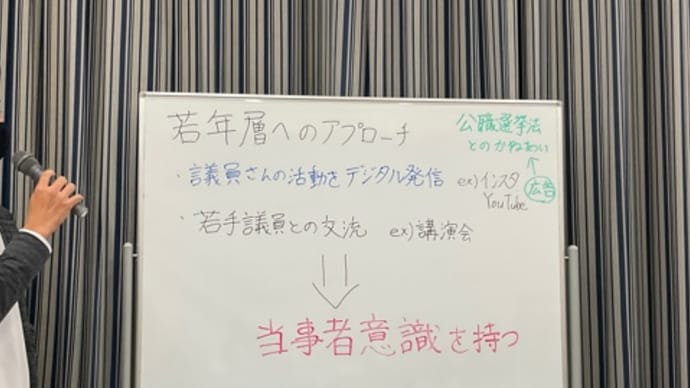 若年層へのアプローチ
公職選挙法
とのかねあい
・議員さんの活動をデジタル発信 ex)インスタ
YouTube
広告
・若手議員との交流 ex)講演会
当事者意識を持つ